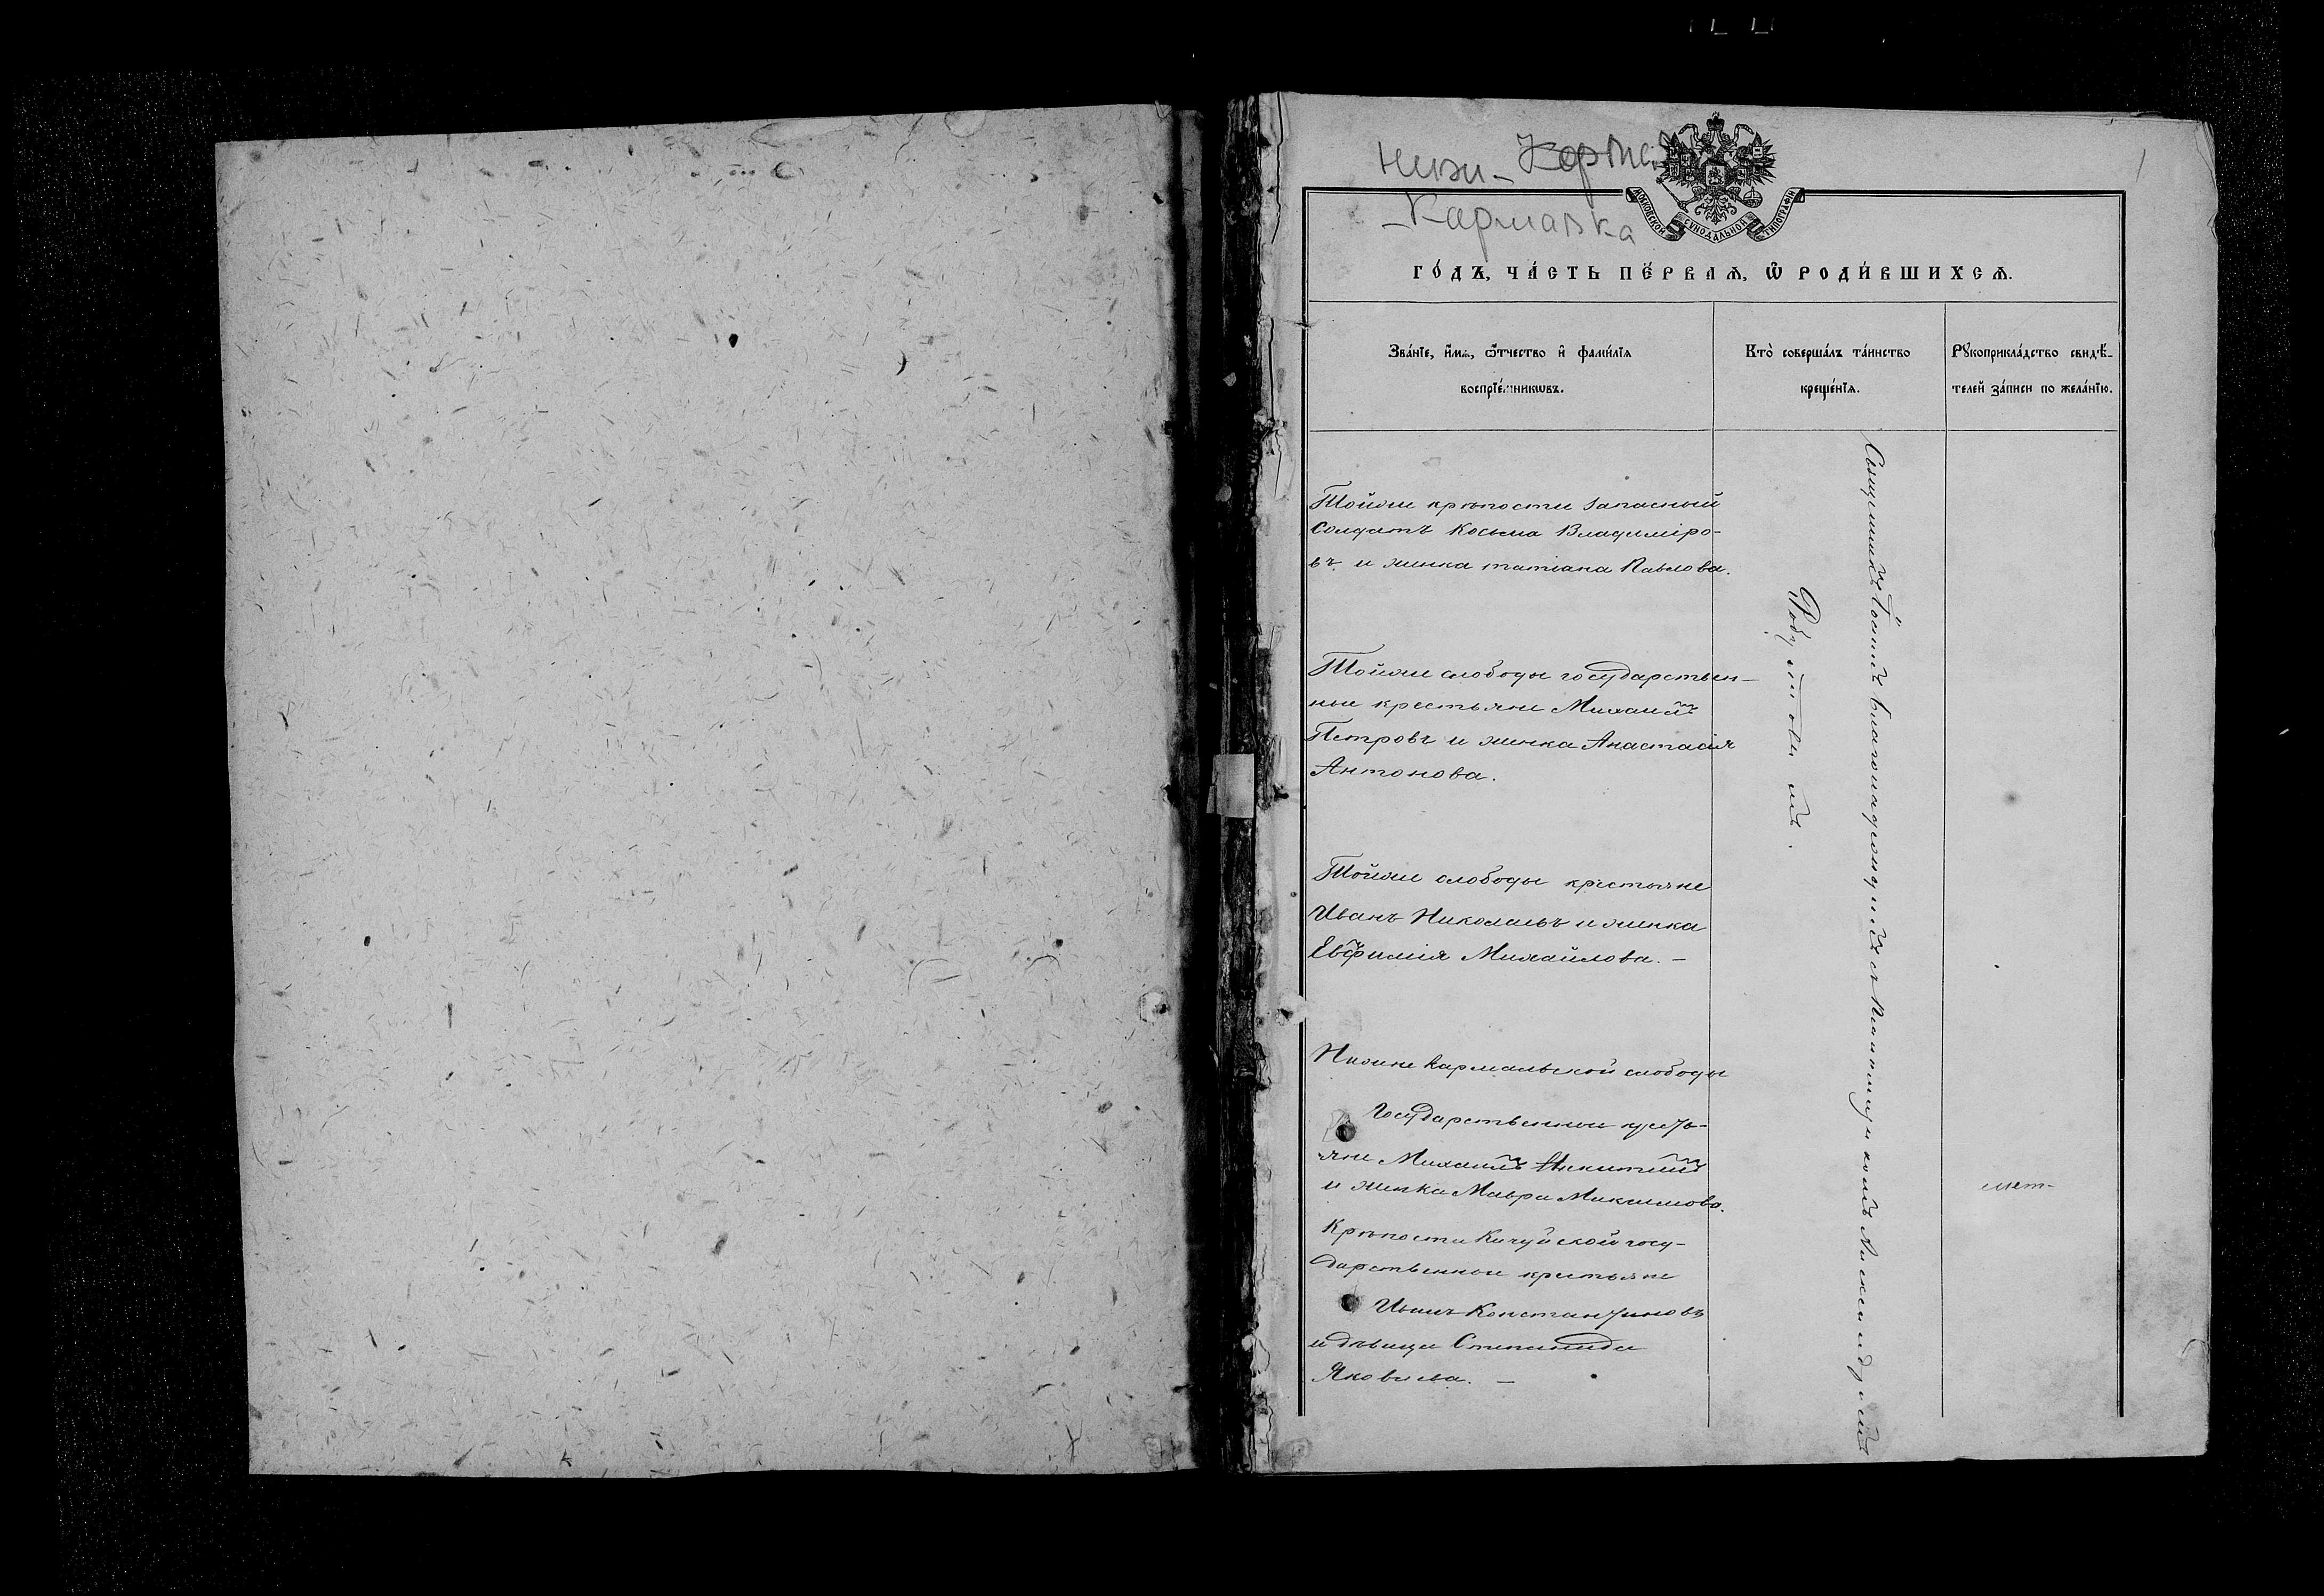 Нижн-
Кармалка
1
МОСКОВСКОЙ СѴНОДАЛЬНОЙ ТИПОГРАФІИ
ГО́ДЪ, ЧА́СТЬ ПЕ́РВАѦ, Ѡ҆ РОДИ́ВШИХСѦ.
Зва́нїе, и҆́мѧ, ѻ҆́тчество и҆ фамі́лїа
воспрїе́мникѡвъ.
Кто̀ соверша́лъ та́инство
креще́нїѧ.
Рꙋкоприкла́дство свидѣ́-
телей за́писи по жела́нїю.
Тойже крѣпости запасный
солдатъ Косьма Владиміро-
въ и женка татіана Павлова.
Тойже слободы государствен-
ные крестьяне Михаилъ
Петровъ и женка Анастасія
Антонова.
Тойже слободы крестьяне
Иванъ Николаевъ и женка
Евфимія Михайлова. –
Нижне Кармальской слободы
Государственные кресть-
яне Михаилъ Никитинъ
и женка Мавра Максимова.
Крѣпости Кичуйской госу-
дарственные крестьяне
Иванъ Константиновъ
и дѣвица Степанида
Яковлева. –
Священникъ